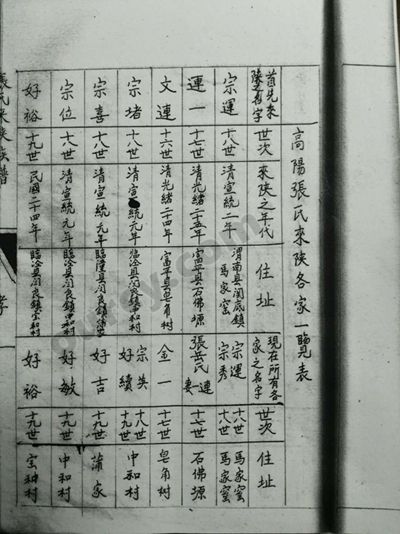 高陽張氏來陝各家一覽表
首先來陝者名字 世次 來陝之年代 住址 現在所有各家之名字 世次 住址
宗運 十八世 清宣統二年 渭南縣閻底鎮馬家窰 宗運 宗秀 十八世 十八世 馬家窰 馬家窰
運一 十七世 清光緒二十五年 富平縣石佛塬 張岳氏 運一妻 十七世 石佛塬
文連 十六世 清光緒二十四年 富平縣皂角樹 金一 十七世 皂角樹
宗堵 十八世 清宣統元年 臨潼縣閻良鎮中和村 宗英 好績 十八世 十九世 中和村
宗喜 十八世 清宣統元年 臨潼縣閻良鎮蒲家 好吉 十九世 蒲家
宗位 十八世 清宣統元年 臨潼縣閻良鎮中和村 好敏 十九世 中和村
好裕 十九世 民國二十四年 臨潼縣閻良鎮 好裕 十九世
張氏來陝族譜